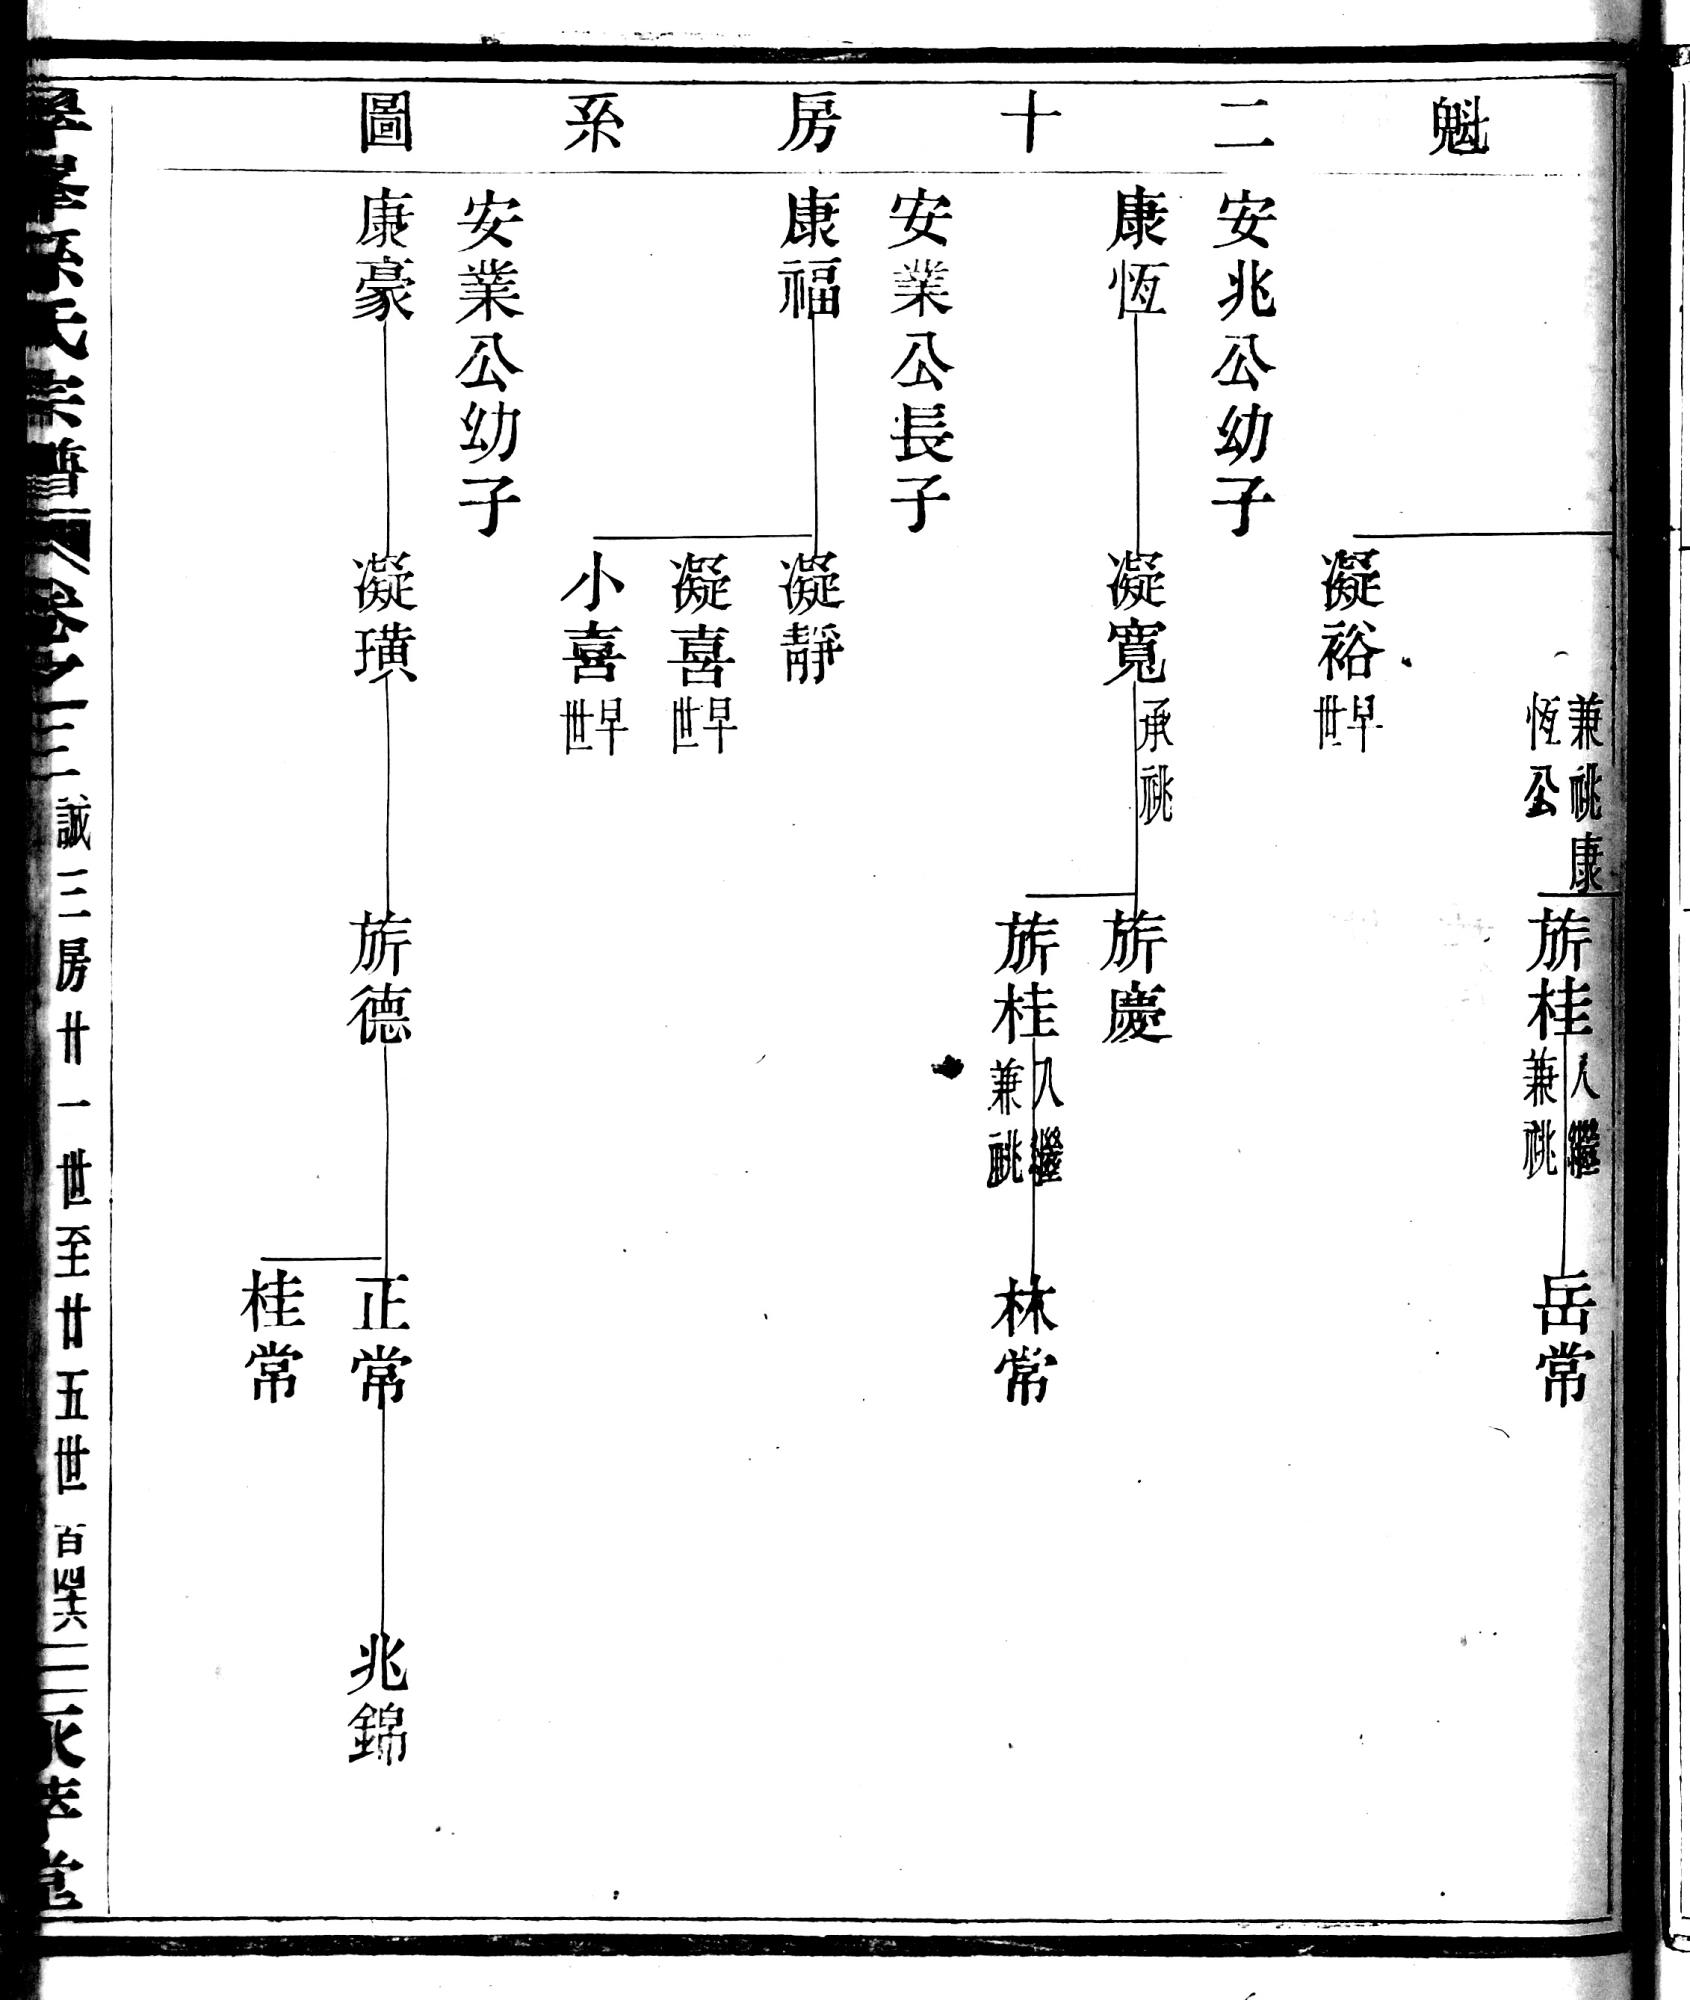 魁二十房系圖
兼祧康
恆公
旂桂
入繼
兼祧
岳常
凝裕
早世
安兆公幼子
康恆
凝寬
承祧
旂慶
旂桂
入繼
兼祧
林常
安業公長子
康福
凝靜
凝喜
早世
小喜
早世
安業公幼子
康豪
凝璜
旂德
正常
兆錦
桂常
孫氏宗譜
卷之三
誠三房廿一世至廿五世
百四十六
堂